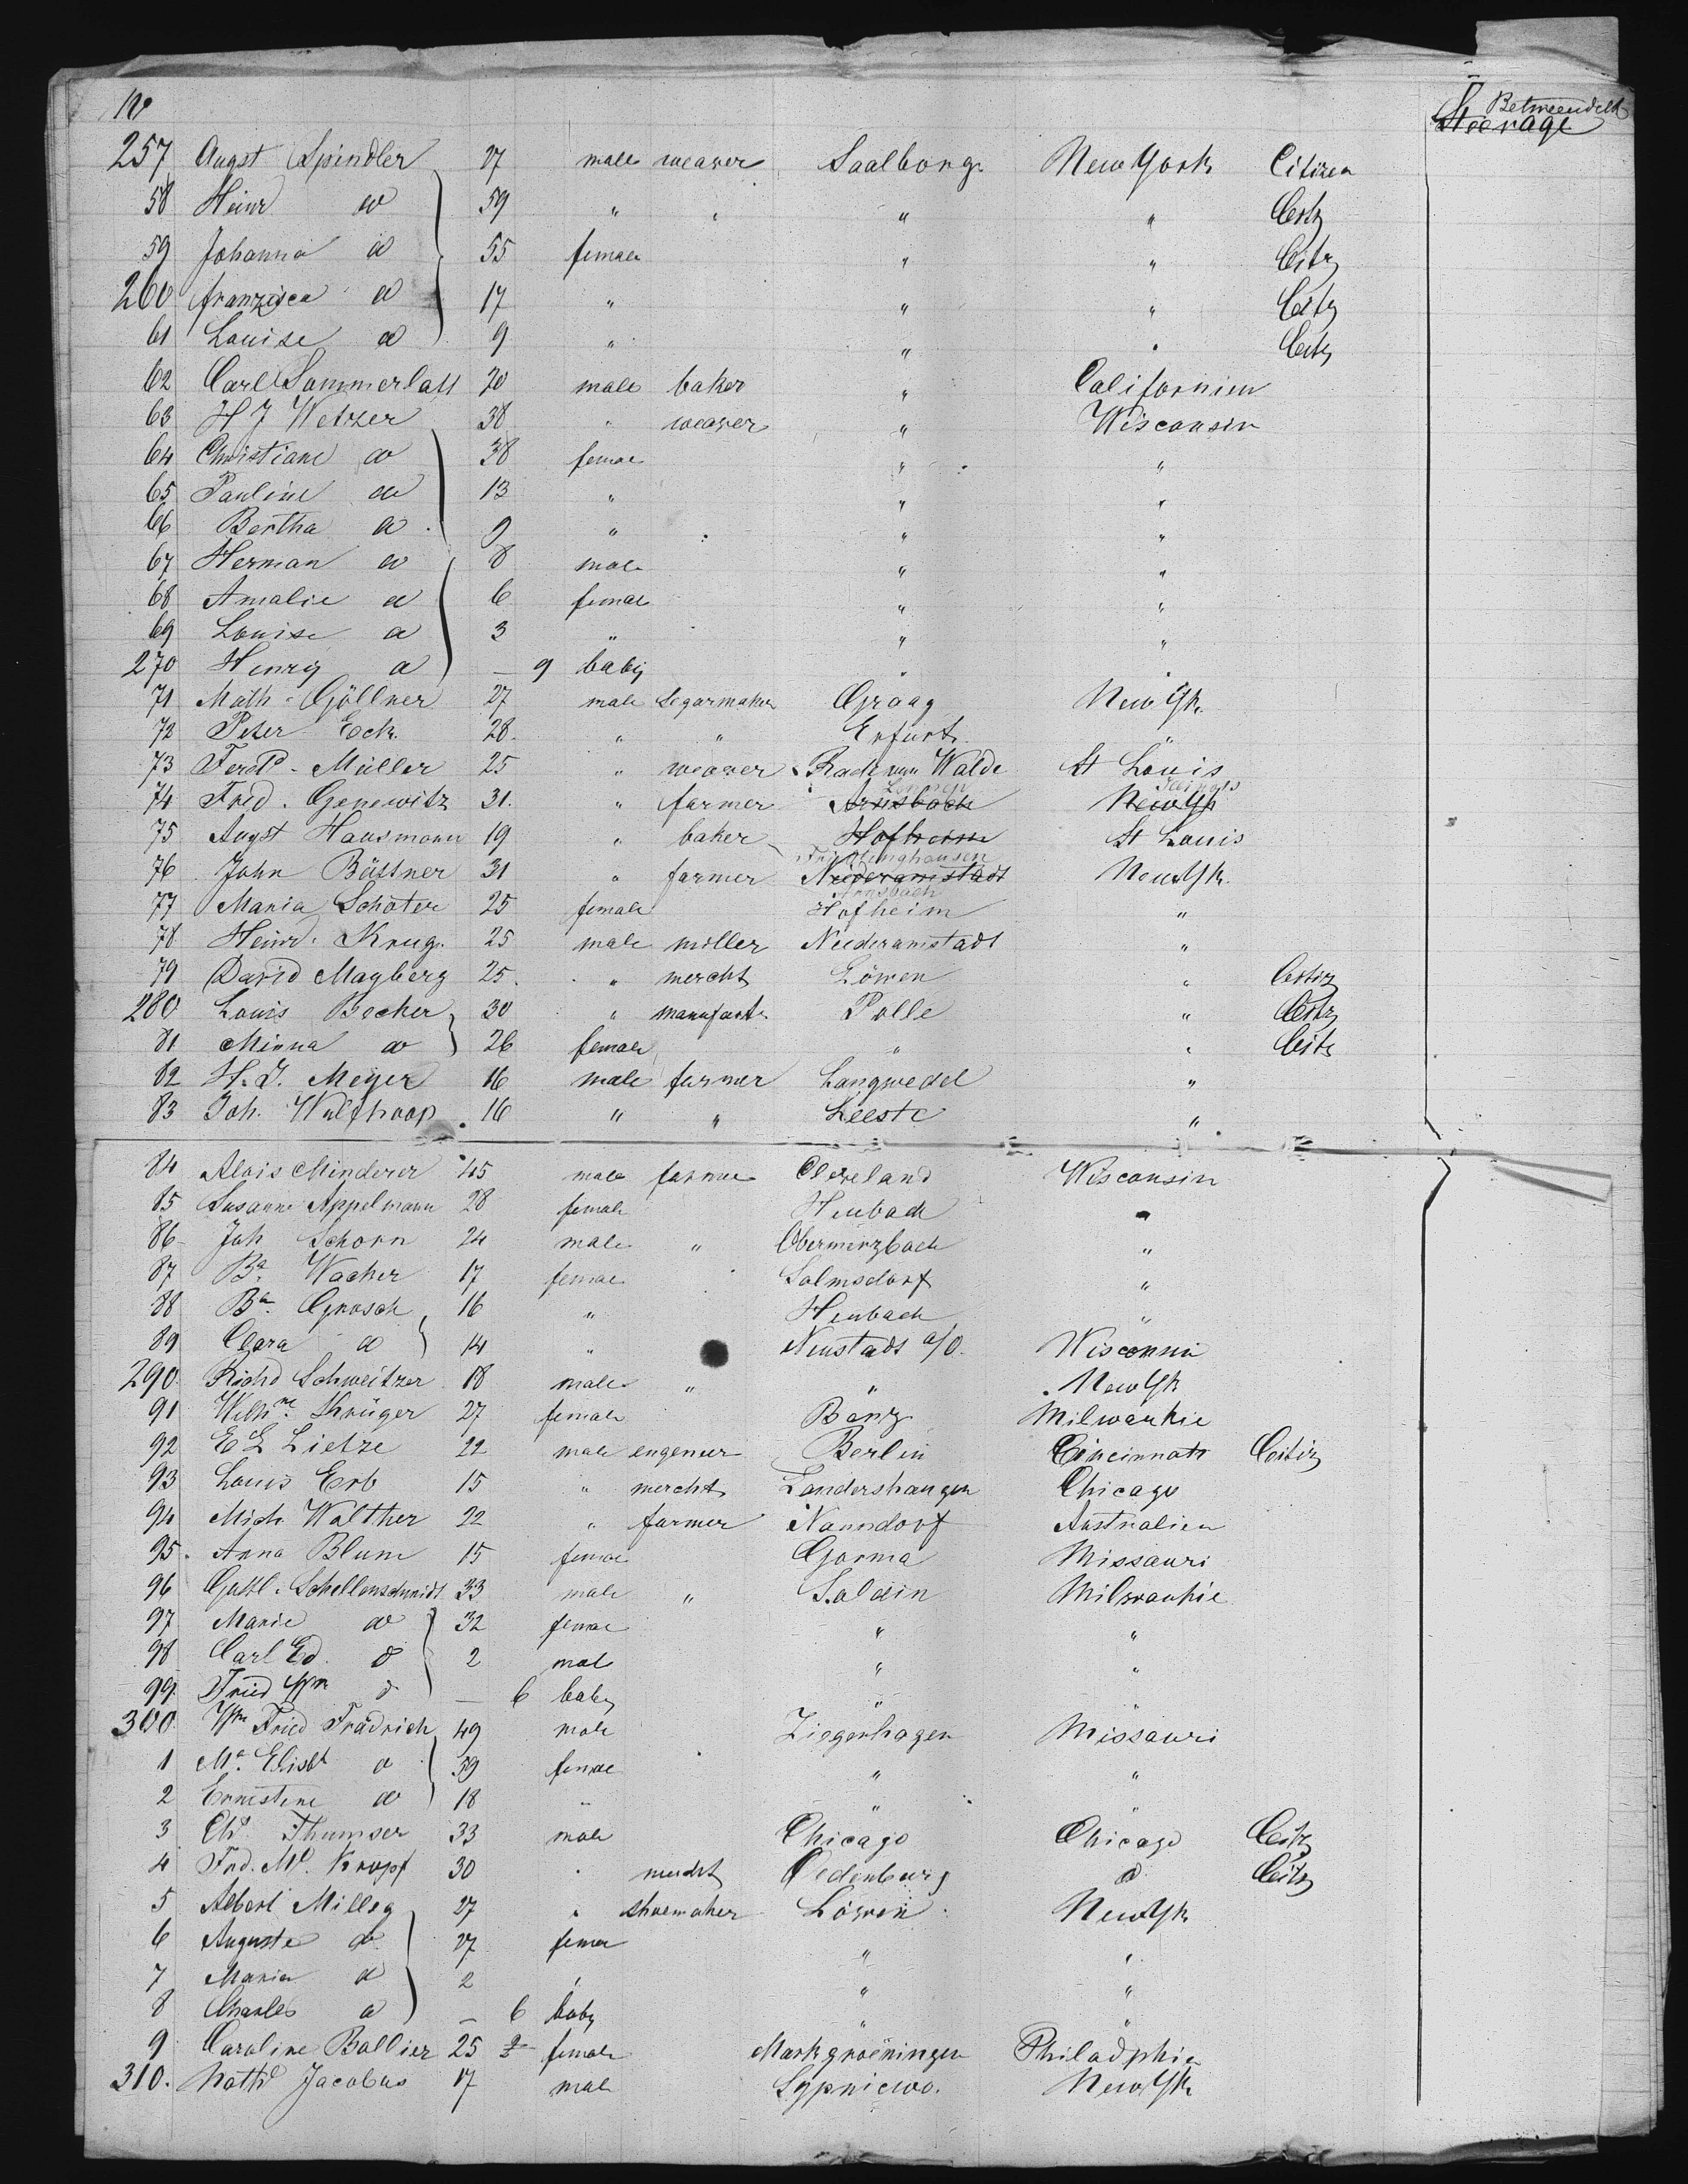 No
Betweendeck
Steerage
257 Augst Spindler 27 male weaver Saalborg New York Citizen
58 Heinr do 59 " " " " Citz
59 Johanna do 55 female " " Citz
260 Franzisca do 17 " " " Citz
61 Louise do 9 " " " Citz
62 Carl Sommerlatt 20 male baker " Californien
63 H J Wetzer 38 " weaver " Wisconsin
64 Christiane do 38 female " "
65 Pauline do 13 " " "
66 Bertha do 9 " " "
67 Herman do 8 male " "
68 Amalie do 6 female " "
69 Louise do 3 " " "
270 Henry do — 9 baby " "
71 Math. Göllner 27 male Segarmaker Graag New Yk.
72 Peter Eck. 28. " " Erfurt "
73 Ferdd. Müller 25 " weaver Rade vorm Walde St Louis
74 Fried. Genewitz 31. " farmer Arnsbach New Yk
75 Augst Hausmann 19 " baker Hofheim St Louis
76 John Büttner 31 " farmer Niederamstadt New Yk.
Arnsbach
77 Maria Schöter 25 female Hofheim "
78 Heinr. Krug. 25 male miller Niederamstadt "
79 David Mayberg 25. " mercht Löwen " Citiz
280 Louis Becker 30 " manufact. Polle " Citz
81 Minna do 26 female " " Citz
82 H. J. Meyer 16 male farmer Langwedel "
83 Joh. Wulfhoop 16 " " Leeste "
84 Alois Minderer 45 male farmer Cleveland Wisconsin
85 Susanne Appelmann 28 female Heubach "
86 Joh Schorn 24 male " Obermerzbach "
87 Ba. Wacker 17 female Salmsdorf "
88 Ba. Grosch 16 " Heubach "
89 Clara do 14 " Neustadt a/O. Wisconsin
290 Richd Schweitzer 18 male " " New Yk
91 Wilhne. Krüger 27 female Banz Milwaukie
92 E L Lietze 22 male engeneer Berlin Cincinnati Citiz
93 Louis Erb 15 " mercht Landershaugen Chicago
94 Mich Walther 22 " farmer Nanndorf Australien
95. Anna Blum 15 female Gorma Missouri
96 Gottl. Schellenschmidt 33 male " Soldin Milwaukie
97 Marie do 32 female " "
98 Carl Ed. do 2 male " "
99. Fried Wm do — 6 baby " "
300. Wm Fried Frädrich 49 male Ziegenhagen Missouri
1 Ma. Elisbt do 59 female " "
2 Ernestine do 18 " " "
3 Chd Thumser 33 male Chicago Chicago Citz
4 Frd. Md. Kropf 30 " mercht Oedenburg do Citz
5 Albert Milleg 27 " shoemaker Löwen New Yk
6 Auguste do 27 female " "
7 Maria do 2 " " "
8 Charles do — 6 baby " "
9 Caroline Bollier 25 female Markgroeningen Philadphia
310. Nathl Jacobus 17 male Sypniewo. New Yk